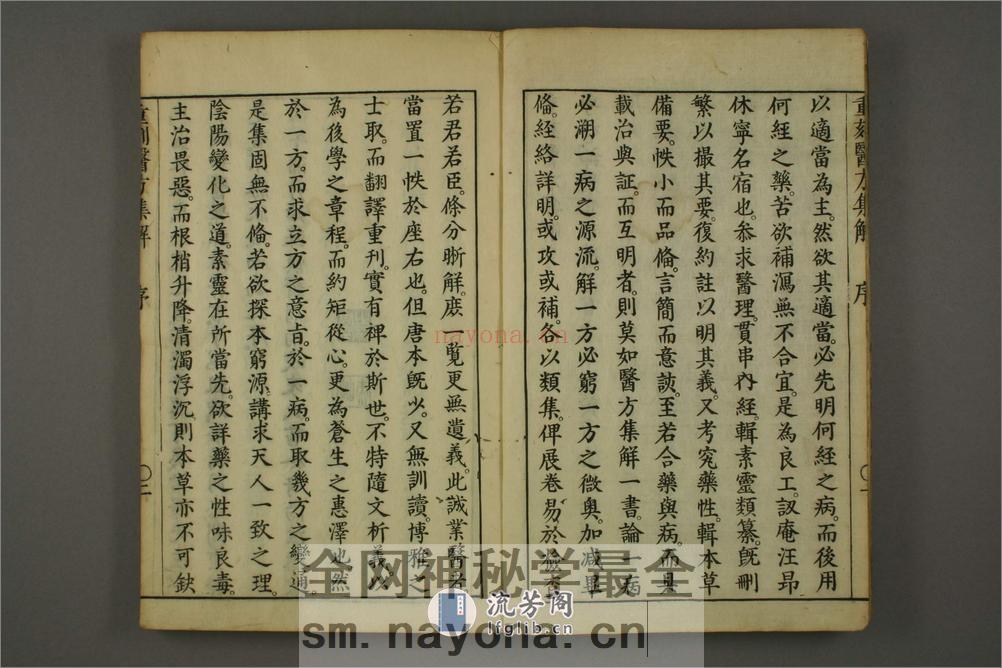 重刻醫方集解　序
以適當為主。然欲其適當。必先明何經之病。而後用
何經之藥。苦欲補瀉無不合宜。是為良工。訒庵汪昂
休寧名宿也。參求醫理。貫串內經。輯素靈類纂。既刪
繁以撮其要。復約註以明其義。又考究藥性。輯本草
備要。帙小而品條。言簡而意該。至若合藥與病。而具
載治與証。而互明者。則莫如醫方集解一書。論一病
必溯一病之源流。解一方必窮一方之微奧。加減畢
條。經絡詳明。或攻或補。各以類集。俾展卷易於檢查
若君若臣。條分晣解。庶一覧更無遺義。此誠業醫者
當置一帙於座右也。但唐本既少。又無訓讀。博雅之
士取。而翻譯重刊。實有裨於斯世。不特隨文析義。以
為後學之章程。而約矩從心。更為蒼生之惠澤也。然
於一方。而求立方之意旨。於一病。而取幾方之變通。
是集固無不條。若欲探本窮源。講求天人一致之理。
陰陽變化之道。素靈在所當先。欲詳藥之性味良毒。
主治畏惡。而根梢升降。清濁浮沉則本草亦不可缺
重刻醫方集解　序
nayona.cn
全网神秘学最全
sm.nayona.cn
流芳阁
lfglib.cn